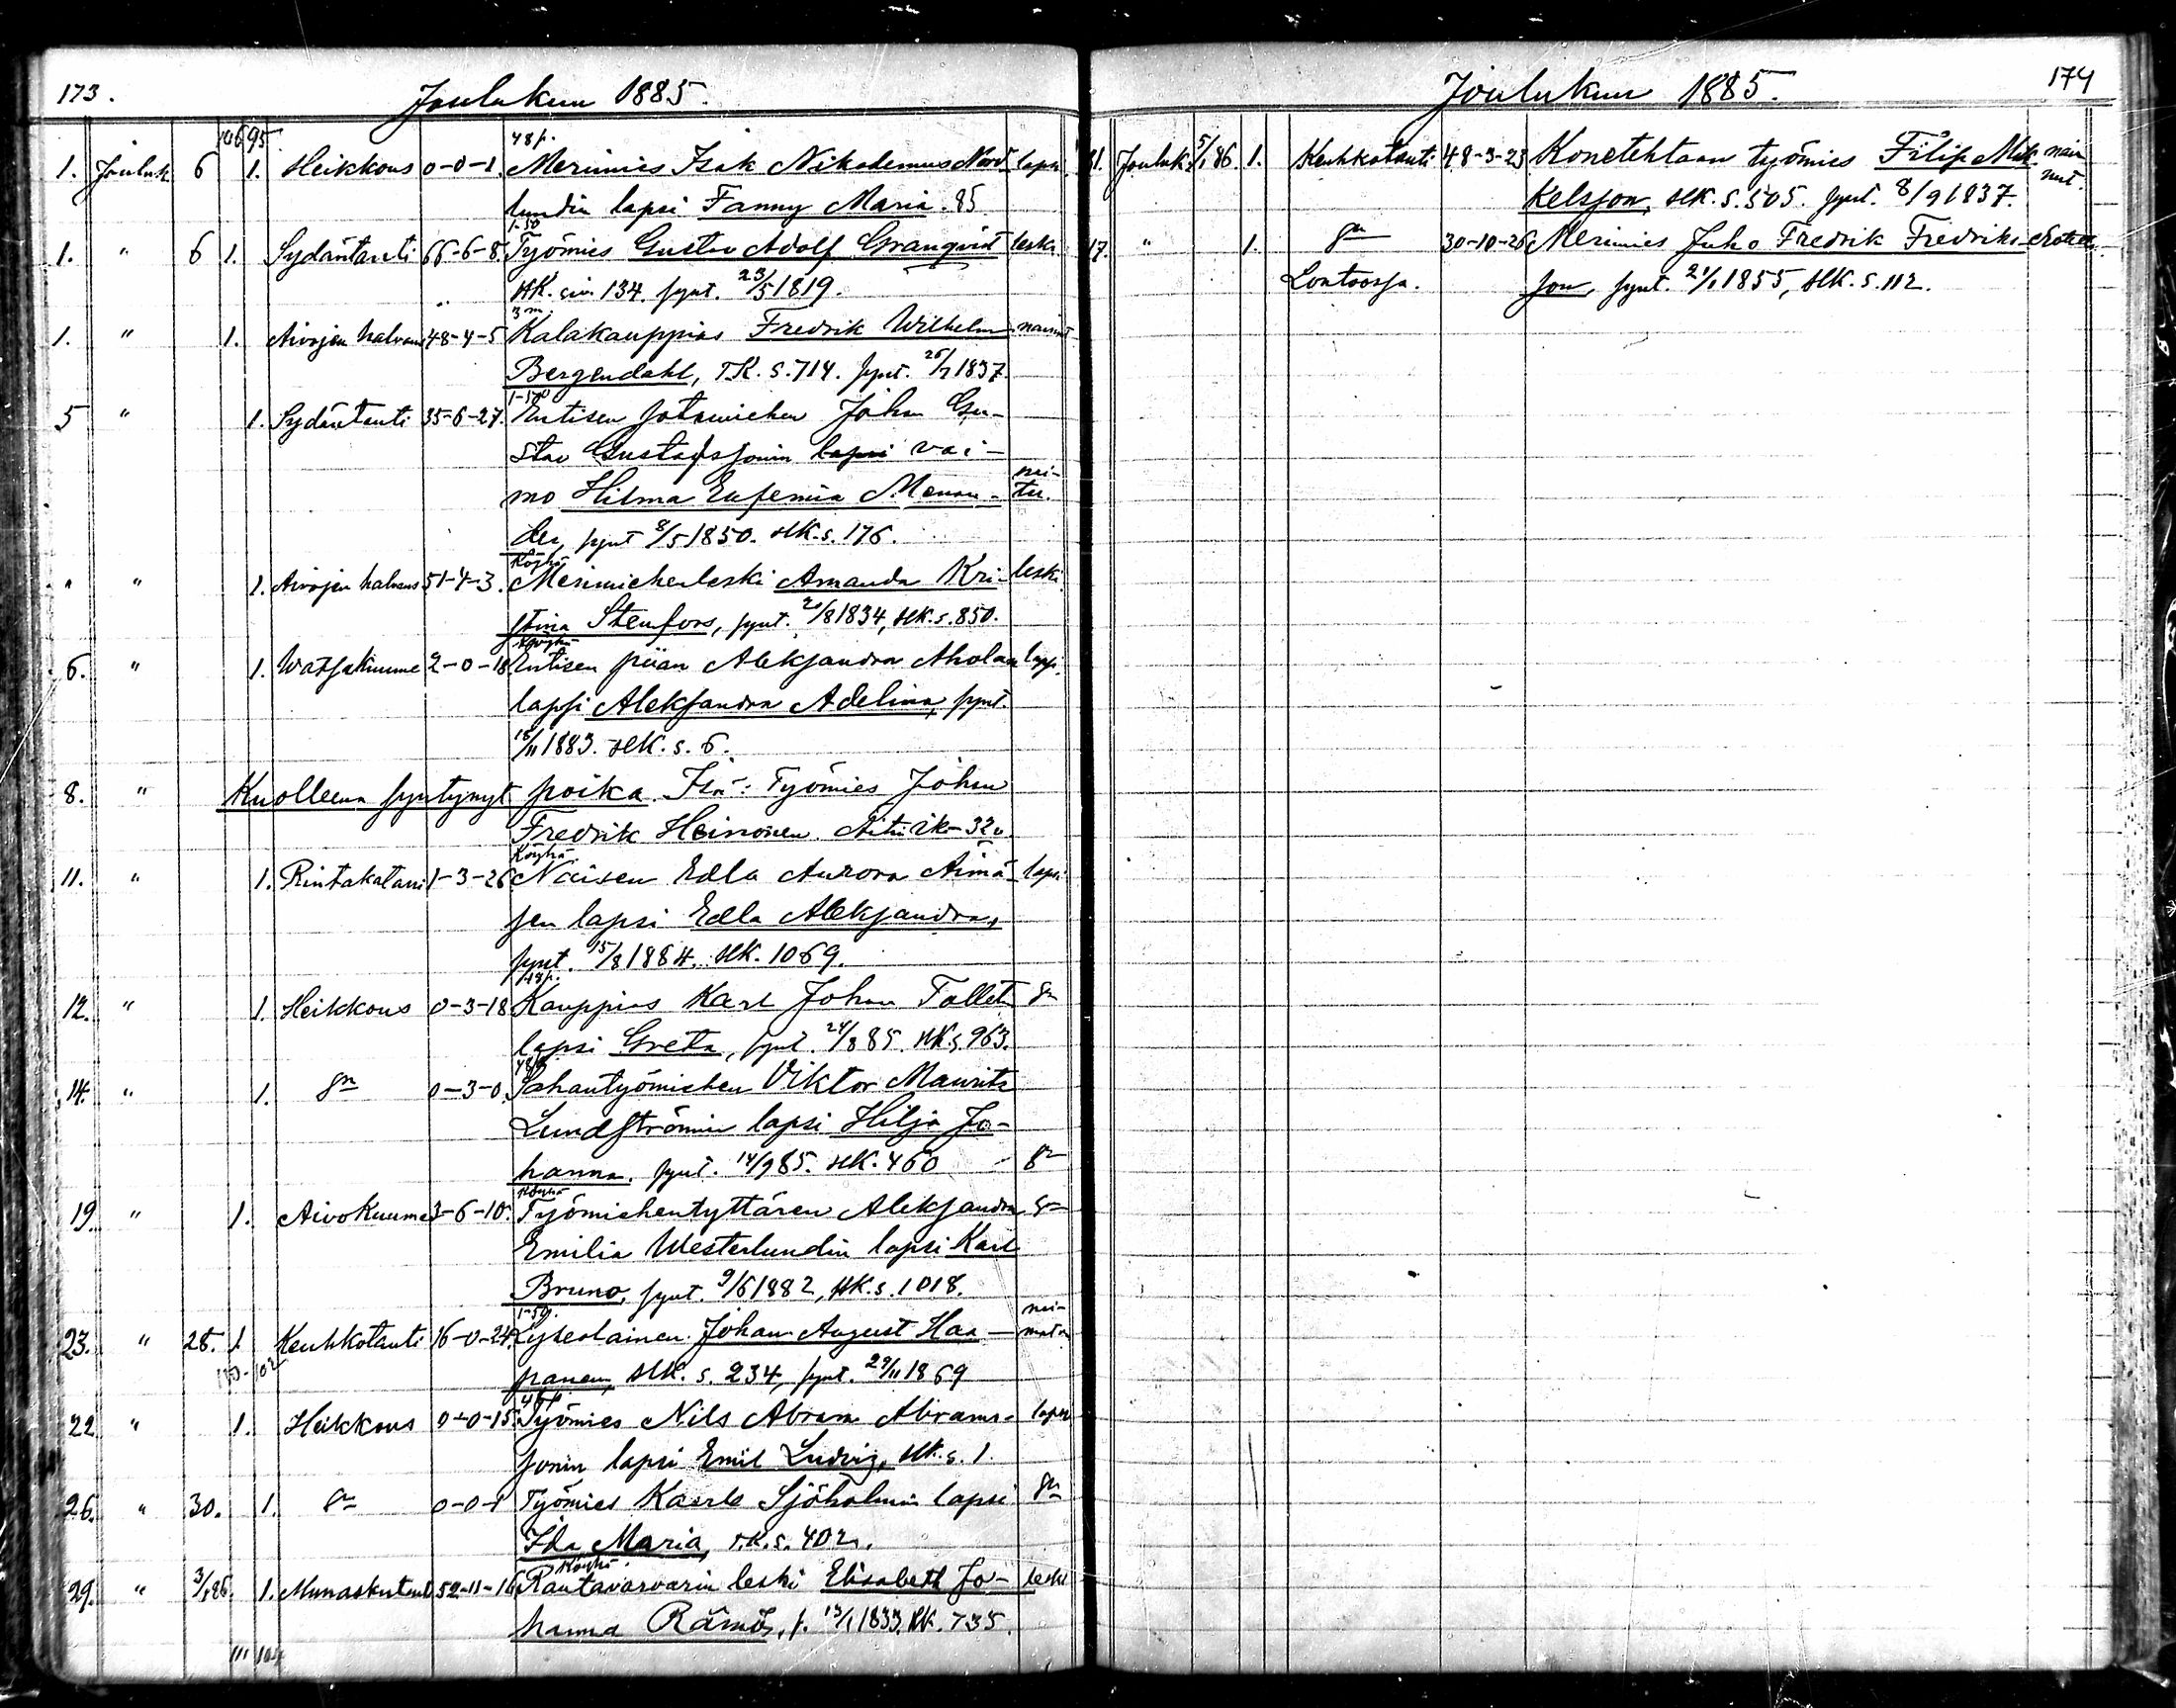 173.
Joulukuu 1885.
106 95
48 p.
1. Jouluk. 6 1. Heikkous 0-0-1. Merimies Isak Nikodemus Nord- lapsi
lundin lapsi Fanny Maria. 85
1-50
1. " 6 1. Sydäntauti 66-6-8. Työmies Gustav Adolf Granqvist leski
RK. siv. 134. synt. 23/5 1819.
3 m.
1. " 1. Aivojen halvaus 48-4-5 Kalakauppias Fredrik Wilhelm nainut
Bergendahl, T.K. s. 714. synt. 26/7 1837.
1-50
5 " 1. Sydäntauti 35-6-27. Entisen sotamiehen Johan Gu-
stav Gustafssonin lapsi vai-
mo Hilma Eufemia Menan- nai-
tu.
der, synt 8/5 1850. RK. s. 176.
Köyhä
" " 1. Aivojen halvaus 51-4-3. Merimiehenleski Amanda Kri- leski
stina Stenfors, synt. 2/8 1834, RK. s. 850.
Köyhä
6. " 1. Watsakuume 2-0-18. Entisen piian Aleksandra Aholan lapsi
lapsi Aleksandra Adelina, synt.
18/11 1883. RK. s. 6.
8. " Kuolleena syntynyt poika. Isä: Työmies Johan
Fredrik Heinonen. Äitiik- 32 v.
Köyhä
11. " 1. Rintakatarri 1-3-26 Naisen Edla Aurora Äimä- lapsi
sen lapsi Edla Aleksandra,
synt. 15/8 1884. RK. 1069.
48 p.
12. " 1. Heikkous 0-3-18 Kauppias Karl Johan Tallet
lapsi Greta, synt. 24/8 85. RK. s. 963.
48 p.
14. " 1. 0-3-0. Sahantyömiehen Viktor Maurits
Lundströmin lapsi Hilja Jo-
hanna. synt. 14/9 85. RK. 460
Köyhä
19. " 1. Aivokuume 3-6-10. Työmiehentyttären Aleksandra
Emilia Westerlundin lapsi Karl
Bruno, synt. 9/6 1882, RK. s. 1018.
1-50.
23. " 28. 1 Keuhkotauti 16-0-24. Lyseolainen Johan August Haa- nai-
maton
110-102
panen, RK. s. 234, synt. 29/11 1869
48 p.
22 " 1. Heikkous 0-0-15. Työmies Nils Abram Abrams- lapsi
sonin lapsi Emil Ludvig, RK. s. 1.
26. " 30. 1. 0-0-1 Työmies Kaarle Sjöholmin lapsi
Ida Maria, r.k. s. 402.
Köyhä
29. " 3/1 86. 1. Munaskutaut 52-11-16. Rautavarvarin leski Elisabeth Jo- leski
hanna Rämö, s. 13/1 1833. RK. 735.
111 104
Joulukuu 1885.
174
31. Jouluk. 5/1 86. 1. Keuhkotauti 48-3-23 Konetehtaan työmies Filip Mik- nai-
nut.
kelsson, RK. s. 505. synt. 8/9 1837.
17. " 1. 30-10-26 Merimies Juho Fredrik Fredriks-
Lontoossa. son, synt. 21/1 1855, RK. s. 112.